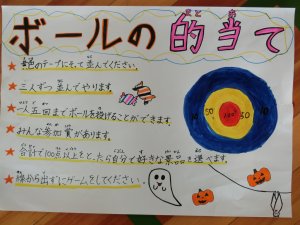 ボールの的当て
まと あ
★緑のテープにそって並んでください。
★三人ずつ並んでやります。
★一人五回までボールを投げることができます。
★みんな参加賞があります。
★合計で100点以上をとったら自分で好きな景品を選べます。
★線から出ずにゲームをしてください。
10 50 100 30 10